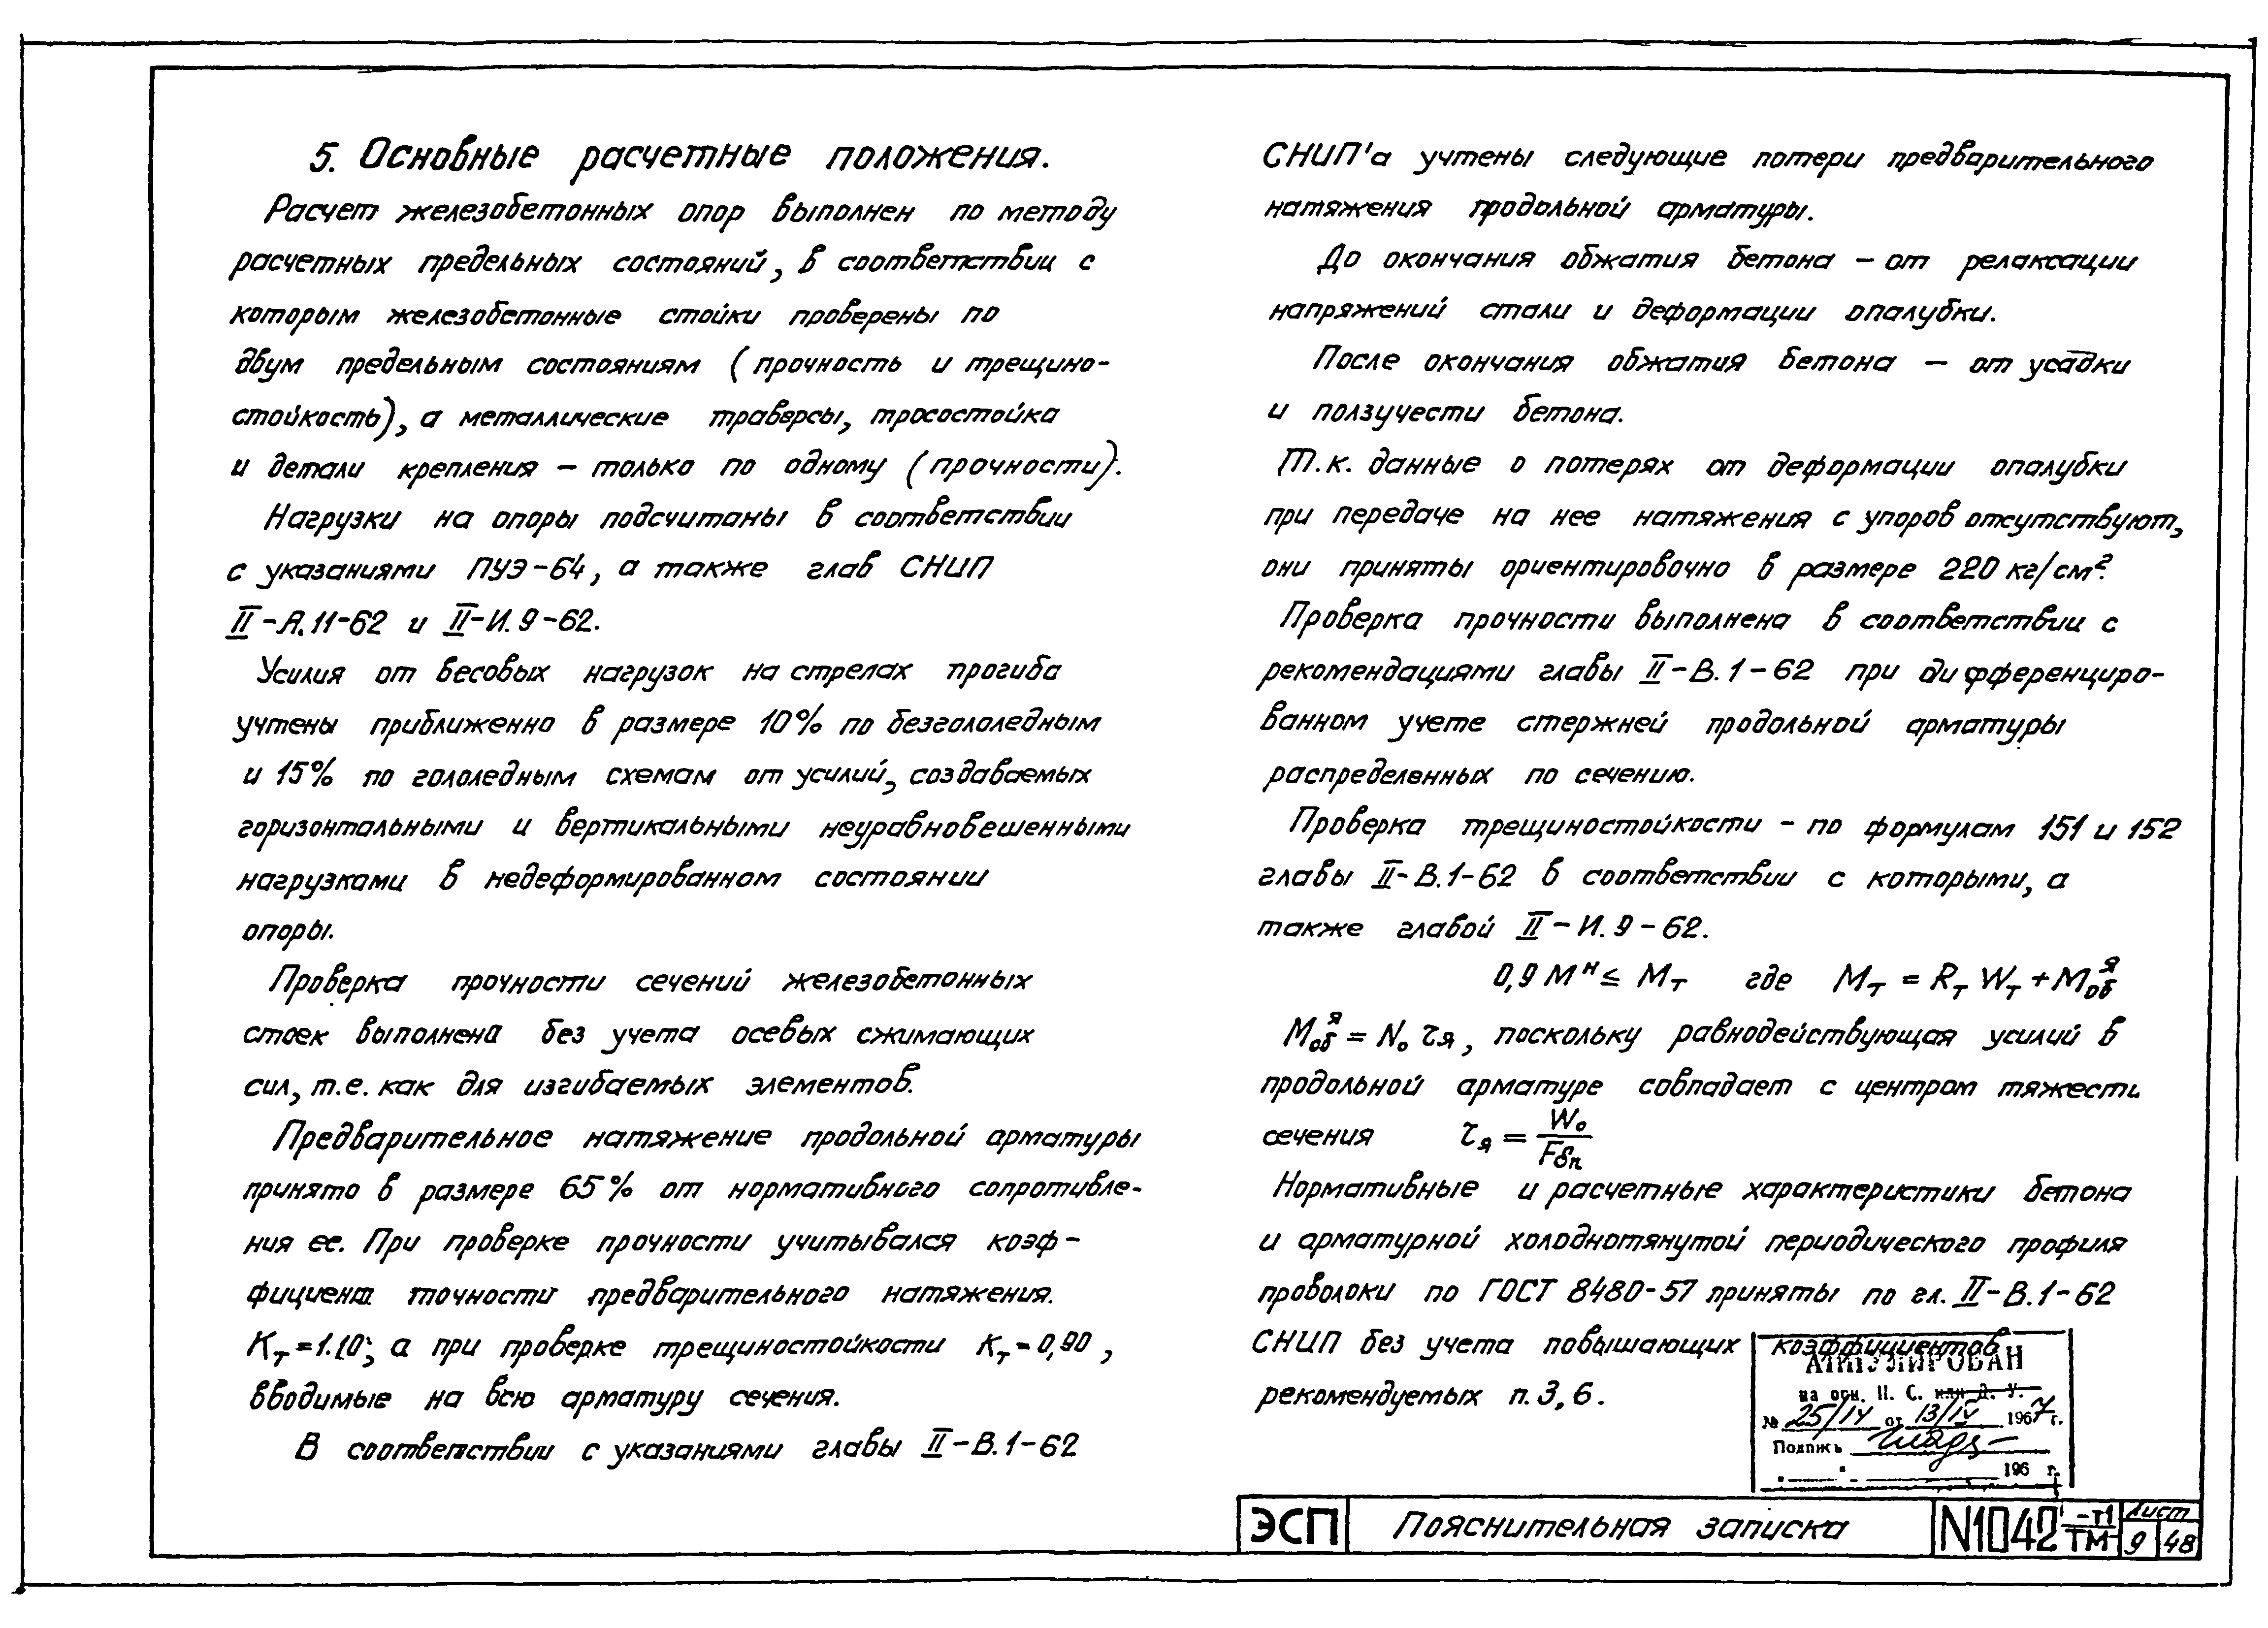 5. Основные расчетные положения.
Расчет железобетонных опор выполнен по методу
расчетных предельных состояний, в соответствии с
которым железобетонные стойки проверены по
двум предельным состояниям (прочность и трещино-
стойкость), а металлические траверсы, тросостойка
и детали крепления – только по одному (прочности).
Нагрузки на опоры подсчитаны в соответствии
с указаниями ПУЭ-64, а также глав СНИП
II-А.11-62 и II-И.9-62.
Усилия от весовых нагрузок на стрелах прогиба
учтены приближенно в размере 10% по безгололедным
и 15% по гололедным схемам от усилий, создаваемых
горизонтальными и вертикальными неуравновешенными
нагрузками в недеформированном состоянии
опоры.
Проверка прочности сечений железобетонных
стоек выполнена без учета осевых сжимающих
сил, т.е. как для изгибаемых элементов.
Предварительное натяжение продольной арматуры
принято в размере 65% от нормативного сопротивле-
ния ее. При проверке прочности учитывался коэф-
фициент точности предварительного натяжения.
Kт=1.10; а при проверке трещиностойкости Kт=0,90,
вводимые на всю арматуру сечения.
В соответствии с указаниями главы II-В.1-62
СНИП'а учтены следующие потери предварительного
натяжения продольной арматуры.
До окончания обжатия бетона – от релаксации
напряжений стали и деформации опалубки.
После окончания обжатия бетона – от усадки
и ползучести бетона.
Т.к. данные о потерях от деформации опалубки
при передаче на нее натяжения с упоров отсутствуют,
они приняты ориентировочно в размере 220 кг/см².
Проверка прочности выполнена в соответствии с
рекомендациями главы II-В.1-62 при дифференциро-
ванном учете стержней продольной арматуры
распределенных по сечению.
Проверка трещиностойкости – по формулам 151 и 152
главы II-В.1-62 в соответствии с которыми, а
также главой II-И.9-62.
0,9 Mᴴ ≤ Mт где Mт = Rт Wт + Mоб^я
Mоб^я = Nо τя, поскольку равнодействующая усилий в
продольной арматуре совпадает с центром тяжести
сечения τя = Wо/Fбп
Нормативные и расчетные характеристики бетона
и арматурной холоднотянутой периодического профиля
проволоки по ГОСТ 8480-57 приняты по гл. II-В.1-62
СНИП без учета повышающих коэффициентов
рекомендуемых п. 3,6.
АННУЛИРОВАН
на осн. Н. С. или Д. У.
№ 25/IV от 13/IV 1967 г.
Подпись
196 г.
ЭСП Пояснительная записка N1042 -т1 Лист
ТМ 9 48